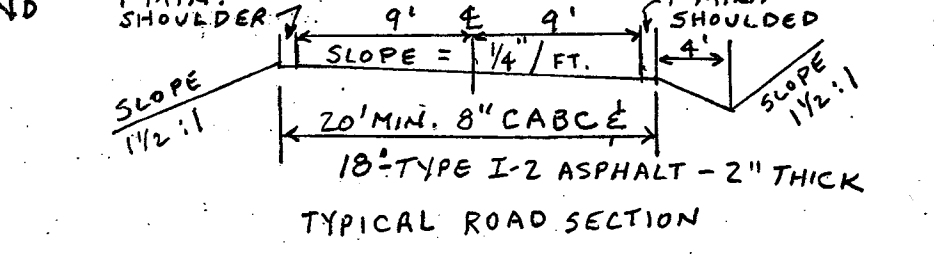 ND
SHOULDER
SHOULDED
9' ℄ 9'
4'
SLOPE = 1/4" / FT.
SLOPE
1 1/2 : 1
SLOPE
1 1/2 : 1
20' MIN. 8" CABC &
18'-TYPE I-2 ASPHALT - 2" THICK
TYPICAL ROAD SECTION